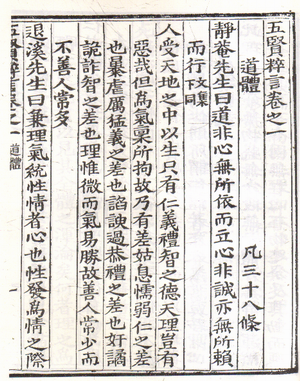 五賢粹言卷之一
道體 凡三十八條
靜菴先生曰道非心無所依而立心非誠亦無所賴
而行文集下同
人受天地之中以生只有仁義禮智之德天理豈有
惡哉但爲氣稟所拘故乃有差姑息懦弱仁之差
也暴虐厲猛義之差也諂諛過恭禮之差也奸譎
詭詐智之差也理惟微而氣易勝故善人常少而
不善人常多
退溪先生曰兼理氣統性情者心也性發爲情之際
五賢粹言卷之一 道體